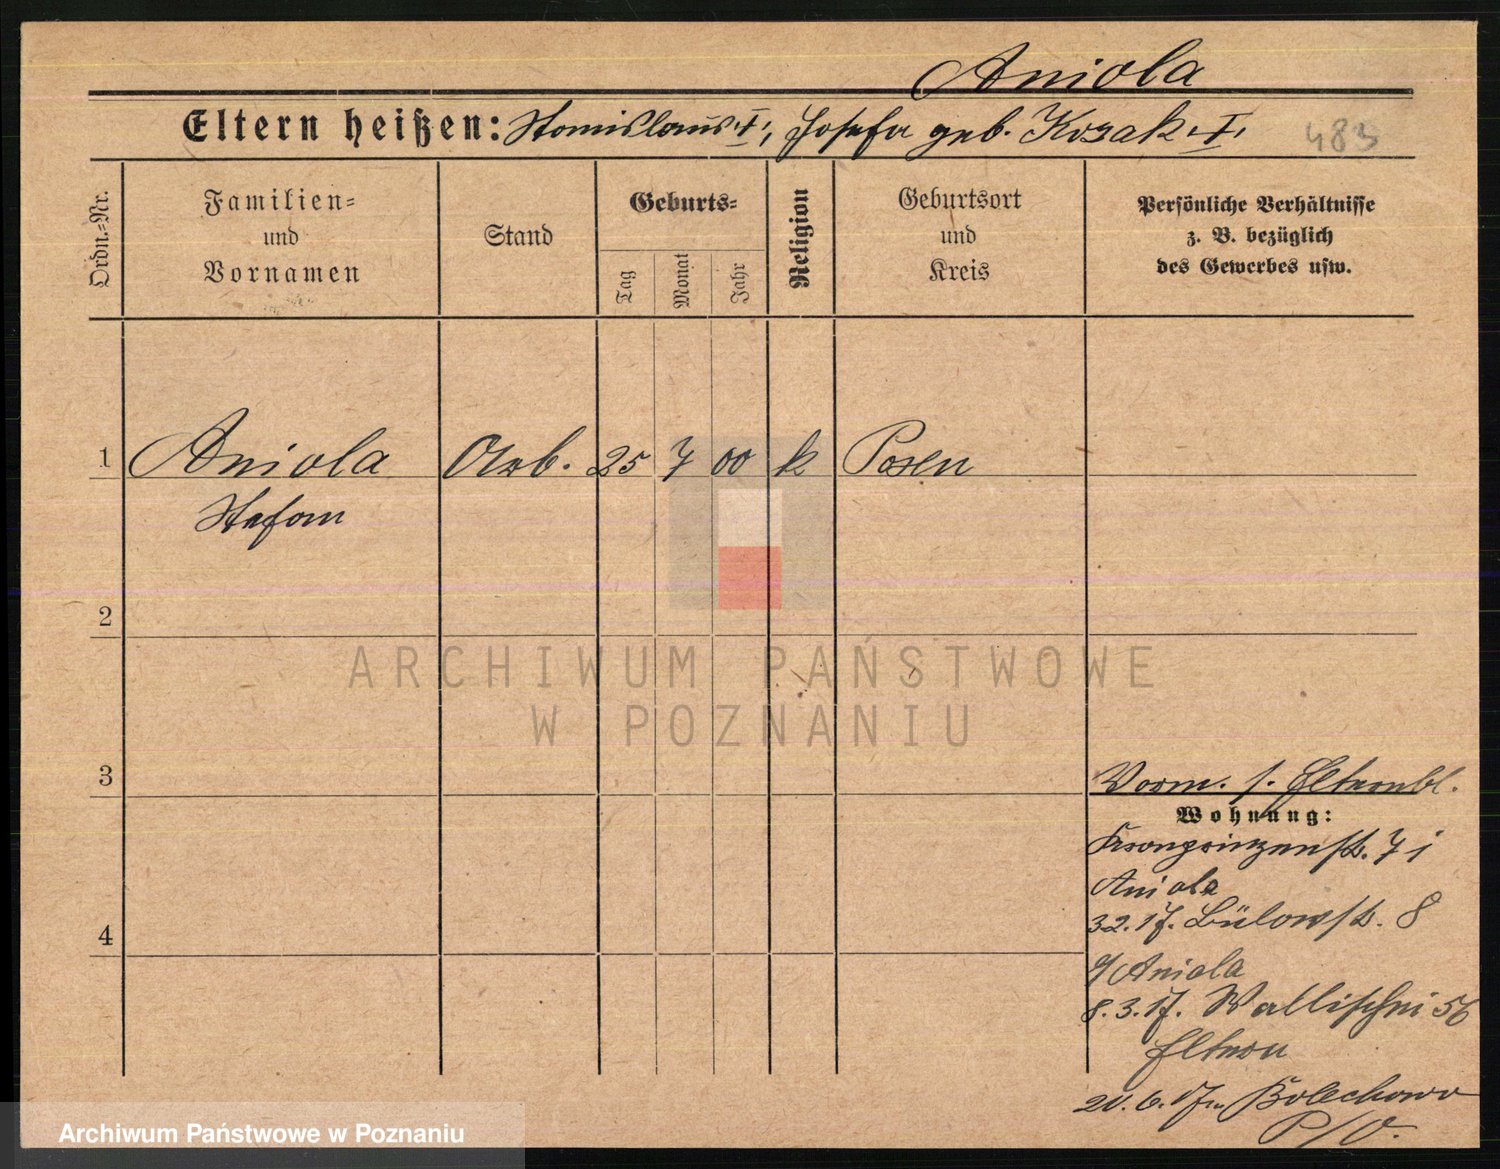 Aniola
Eltern heißen: Stanislaus "I", Josefa geb. Kozak "I"
483
Ordn.-Nr.
Familien-
und
Vornamen
Stand
Geburts-
Tag
Monat
Jahr
Religion
Geburtsort
und
Kreis
Persönliche Verhältnisse
z. B. bezüglich
des Gewerbes usw.
1 Aniola Arb. 25 7 00 k Posen
Stefan
2
3
4
Vorm. s. Elternbl.
Wohnung:
Kronprinzenstr. 7 i
Aniola
3.2.17. Bülowstr. 8
b/Aniola
8.3.17. Wallischei 56
Eltern
20.6.17 n. Bolechowo
P/O.
ARCHIWUM PAŃSTWOWE
W POZNANIU
Archiwum Państwowe w Poznaniu